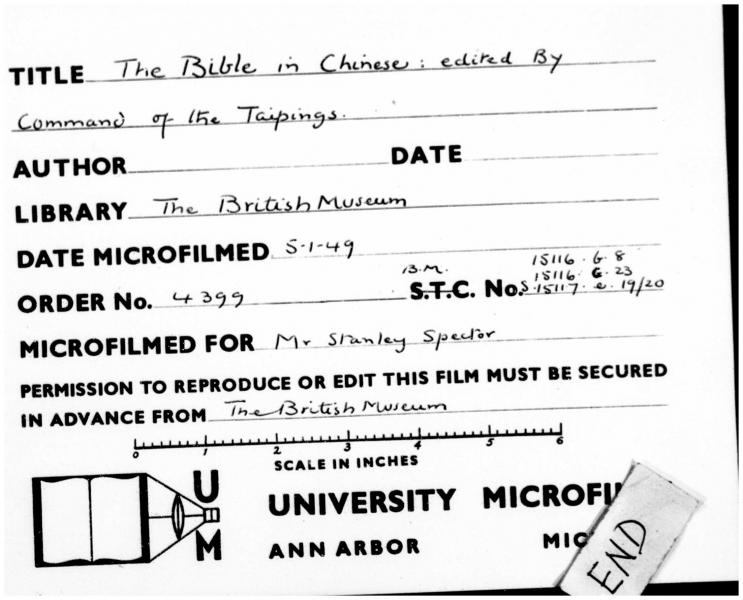 TITLE The Bible in Chinese: edited By
Command of the Taipings.
AUTHOR DATE
LIBRARY The British Museum
DATE MICROFILMED 5-1-49
15116. b. 8
B.M. 15116. C. 23
ORDER No. 4399 S.T.C. No. S.15117. e. 19/20
MICROFILMED FOR Mr Stanley Spector
PERMISSION TO REPRODUCE OR EDIT THIS FILM MUST BE SECURED
IN ADVANCE FROM The British Museum
0 1 2 3 4 5 6
SCALE IN INCHES
U
M
UNIVERSITY MICROFI
ANN ARBOR MIC
END